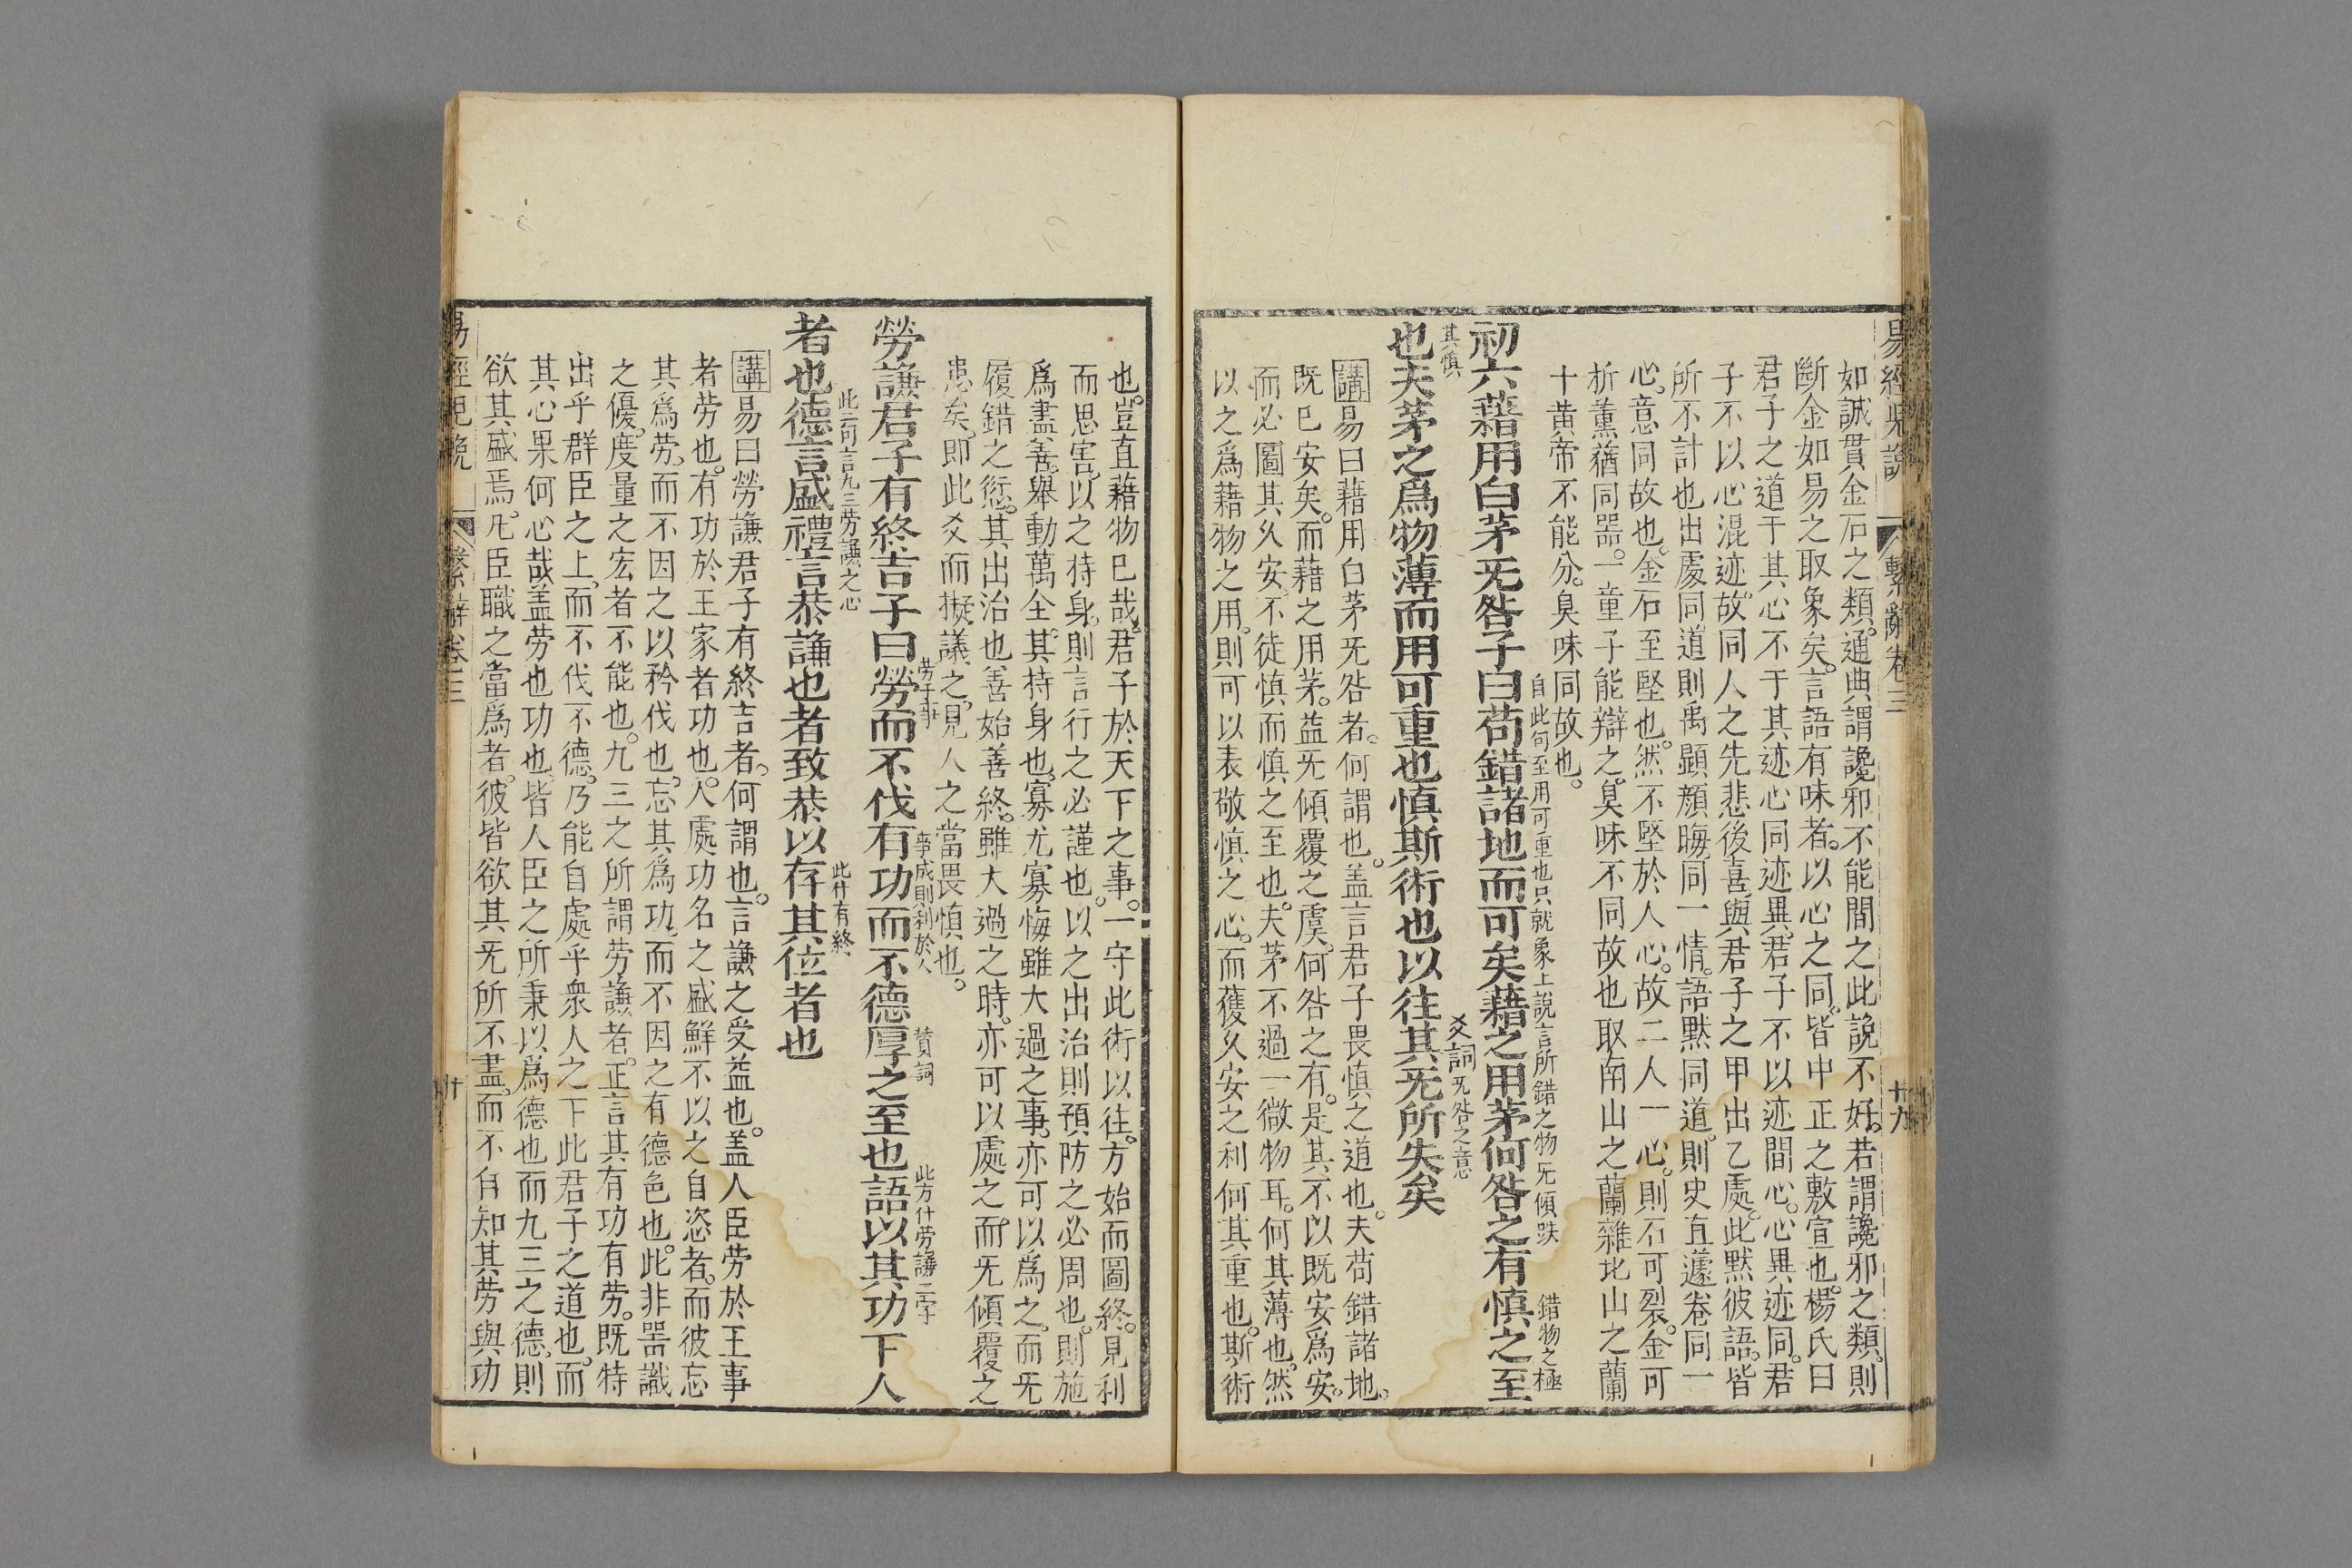 易經兒說
繫辭卷三
十九
如誠貫金石之類。通典謂讒邪不能間之此說不好。若謂讒邪之類。則
斷金如易之取象矣。言語有味者。以心之同。皆中正之敷宣也。楊氏曰
君子之道于其心不于其迹心同迹異。君子不以迹間心。心異迹同。君
子不以心混迹。故同人之先悲後喜與君子之甲出乙處。此默彼語。皆
所不計也出處同道則禹顯顏晦同一情。語默同道。則史直蘧卷同一
心。意同故也。金石至堅也。然不堅於人心。故二人一心。則石可裂。金可
析薰蕕同器。一童子能辯之。臭味不同故也取南山之蘭雜北山之蘭
十黃帝不能分。臭味同故也。
自此句至用可重也只就象上說言所錯之物旡傾跌
錯物之極
初六藉用白茅旡咎子曰苟錯諸地而可矣藉之用茅何咎之有慎之至
其慎
爻詞旡咎之意
也夫茅之爲物薄而用可重也慎斯術也以往其旡所失矣
講易曰藉用白茅旡咎者。何謂也。盖言君子畏慎之道也。夫苟錯諸地。
既已安矣。而藉之用茅。益旡傾覆之虞。何咎之有。是其不以既安爲安。
而必圖其久安。不徒慎而慎之至也。夫茅不過一微物耳。何其薄也。然
以之爲藉物之用。則可以表敬慎之心。而獲久安之利何其重也。斯術
也。豈直藉物已哉。君子於天下之事。一守此術以往。方始而圖終。見利
而思害。以之持身。則言行之必謹也。以之出治則預防之必周也。則施
爲盡善。舉動萬全。其持身也。寡尤寡悔雖大過之事。亦可以爲之。而旡
履錯之愆。其出治也善始善終。雖大過之時。亦可以處之而旡傾覆之
患矣。即此爻而擬議之。見人之當畏慎也。
勞于事
事成則利於人
贊詞
此方什劳謙二字
勞謙君子有終吉子曰勞而不伐有功而不德厚之至也語以其功下人
此二句言九三劳謙之心
此什有終
者也德言盛禮言恭謙也者致恭以存其位者也
講易曰勞謙君子有終吉者。何謂也。言謙之受益也。盖人臣劳於王事
者劳也。有功於王家者功也。人處功名之盛鮮不以之自恣者。而彼忘
其爲劳。而不因之以矜伐也。忘其爲功。而不因之有德色也。此非器識
之優。度量之宏者不能也。九三之所謂劳謙者。正言其有功有劳。既特
出乎群臣之上。而不伐不德。乃能自處乎衆人之下此君子之道也。而
其心果何心哉盖劳也功也皆人臣之所秉以爲德也而九三之德。則
欲其盛焉。凡臣職之當爲者。彼皆欲其旡所不盡。而不自知其劳與功
易經兒說
繫辭卷三
廿